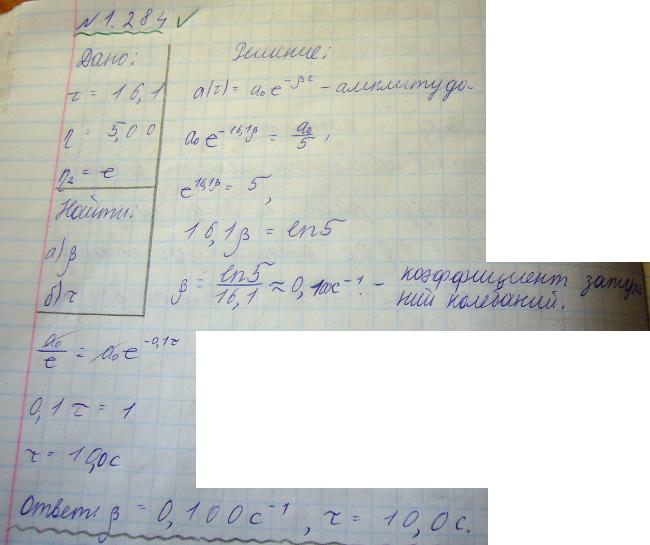 № 1.284 ✓
Дано:
τ = 16,1
η = 5,00
η₂ = e
Найти:
а) β
б) τ
Решение:
a(τ) = a₀ e^-βτ - амплитуда.
a₀ e^-16,1β = a₀/5,
e^16,1β = 5,
16,1β = ln5
β = ln5/16,1 ≈ 0,10с⁻¹ - коэффициент затуха-
ний колебаний.
a₀/e = a₀ e^-0,1τ
0,1τ = 1
τ = 10,0с
Ответ: β = 0,100с⁻¹, τ = 10,0с.